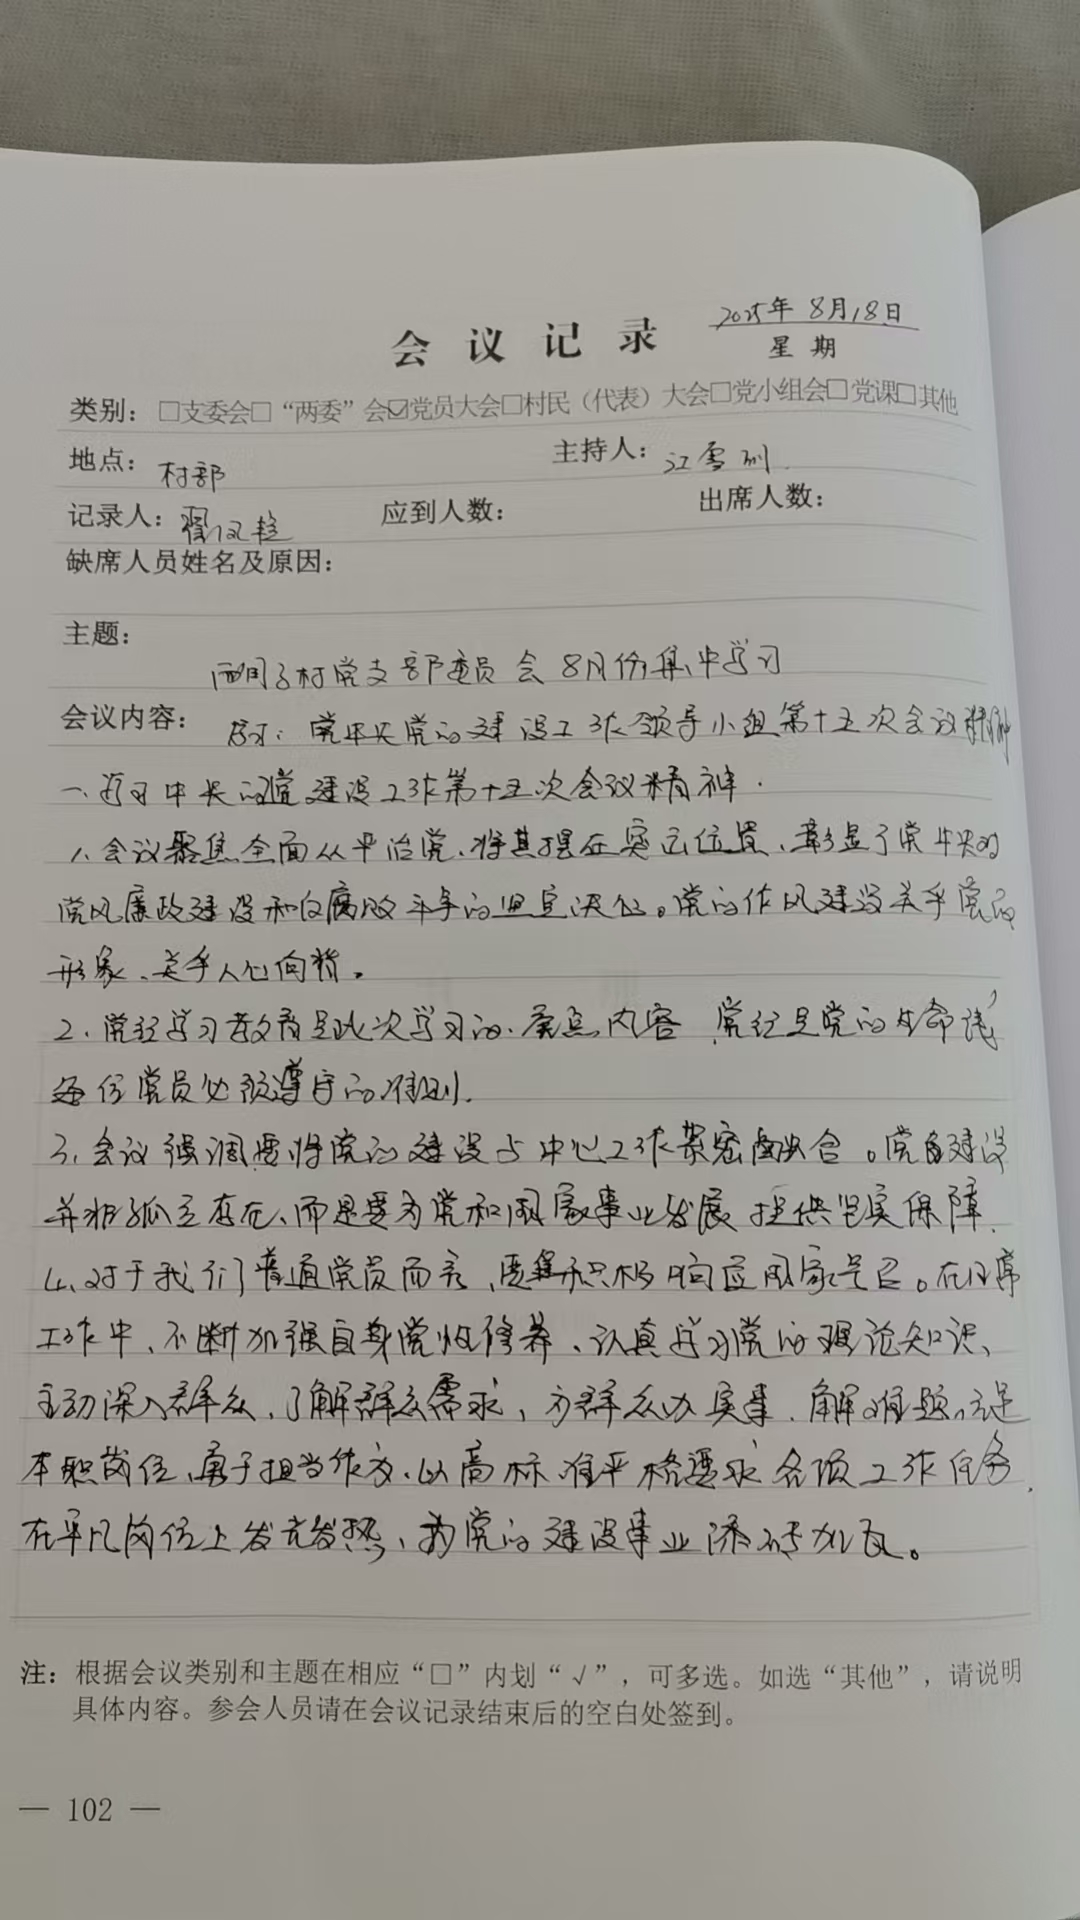 2025年8月18日
会议记录
星期
类别：□支委会□“两委”会☑党员大会□村民（代表）大会□党小组会□党课□其他
地点：村部 主持人：江雪
记录人： 应到人数： 出席人数：
缺席人员姓名及原因：
主题：
村党支部委员会8月份集中学习
会议内容：学习：党中央党的建设工作领导小组第十五次会议精神
一、学习中央的党建设工作第十五次会议精神.
1、会议聚焦全面从严治党、将其摆在突出位置、彰显了党中央对
党风廉政建设和反腐败斗争的坚定决心。党的作风建设关乎党的
形象、关乎人心向背。
2、党纪学习教育是此次学习的重点内容 党纪是党的生命线，
每位党员必须遵守的准则.
3、会议强调要将党的建设与中心工作紧密融合。党的建设
并非孤立存在、而是要为党和国家事业发展提供坚实保障.
4、对于我们普通党员而言，要积极响应国家号召。在日常
工作中、不断加强自身党性修养、认真学习党的理论知识、
主动深入群众、了解群众需求，为群众办实事、解难题，立足
本职岗位、勇于担当作为、以高标准严格要求各项工作任务.
在平凡岗位上发光发热、为党的建设事业添砖加瓦。
注：根据会议类别和主题在相应“□”内划“√”，可多选。如选“其他”，请说明
具体内容。参会人员请在会议记录结束后的空白处签到。
— 102 —